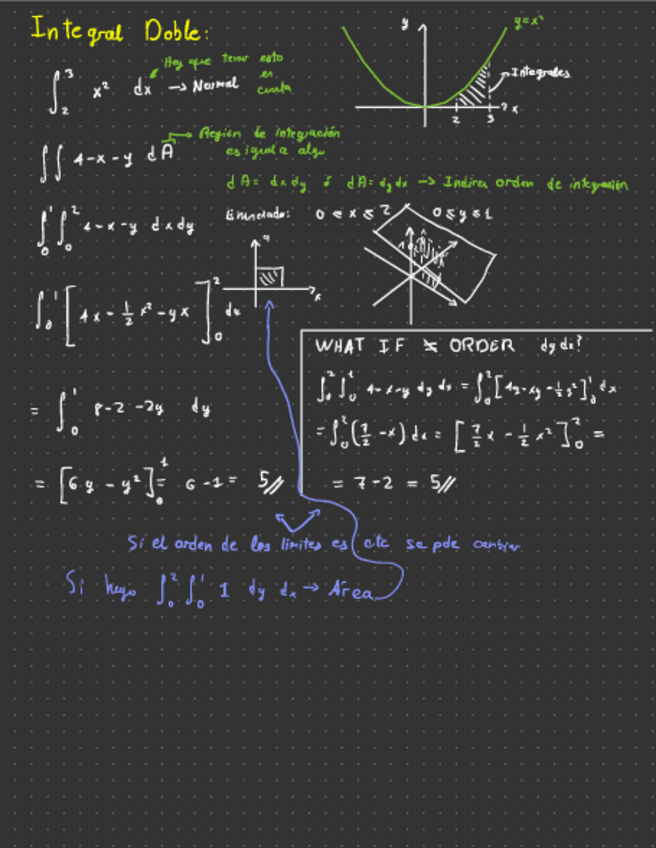 Integral Doble:
y
y=x²
Hay que tener esto
en
cuenta
∫₂³ x² dx → Normal
Integrales
2 3 x
Región de integración
es igual a algo
∬ 4-x-y dA
dA = dx dy ó dA = dy dx → Indica orden de integración
∫₀¹ ∫₀² 4-x-y dx dy
Enunciado: 0 ≤ x ≤ 2 0 ≤ y ≤ 1
∫₀¹ [4x - 1/2 x² - yx]₀² dx
WHAT IF ≠ ORDER dy dx?
∫₀² ∫₀¹ 4-x-y dy dx = ∫₀² [4y - xy - 1/2 y²]₀¹ dx
= ∫₀¹ 8-2-2y dy
= ∫₀² (7/2 - x) dx = [7/2 x - 1/2 x²]₀² =
= [6y - y²]₀¹ = 6-1 = 5//
= 7-2 = 5//
Si el orden de los límites es cte se pde cambiar
Si hago ∫₀² ∫₀¹ 1 dy dx → Área